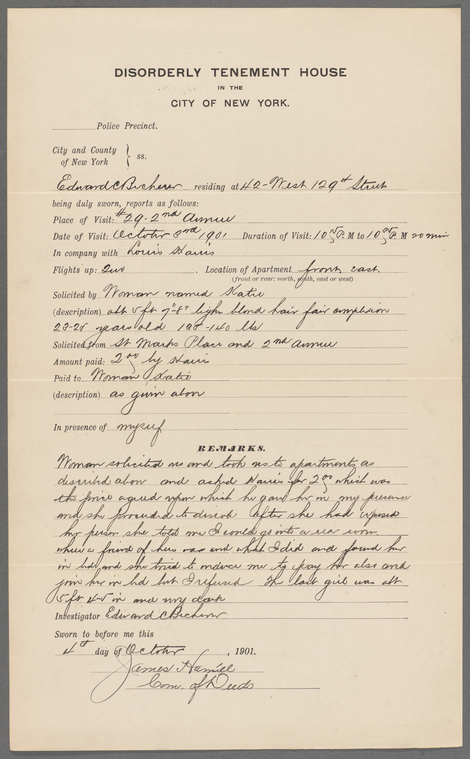 DISORDERLY TENEMENT HOUSE
IN THE
CITY OF NEW YORK.
Police Precinct.
City and County
of New York } ss.
Edward C Becherer residing at 42-West 129th Street
being duly sworn, reports as follows:
Place of Visit: #29-2nd Avenue
Date of Visit: October 3rd 1901 Duration of Visit: 10 P. M to 10 P. M 20 min
In company with Louis Harris
Flights up: Two Location of Apartment front east
(front or rear: north, south, east or west)
Solicited by Woman named Katie
(description) abt 5ft 7"-8" light blond hair fair complexion
years old 140 lbs
Solicited from St Marks Place and 2nd Avenue
Amount paid: 2 00 by Harris
Paid to Woman Katie
(description) as given above
In presence of myself
REMARKS.
Woman solicited me and took us to apartments as
described above and asked Harris for 2 00 which was
the price agreed upon which he gave her in my presence
and she proceeded to disrobe After she had exposed
her person she told me I could go into a rear room
where a friend of hers was and which I did and found her
in bed and she tried to induce me to pay her also and
join her in bed but I refused The last girl was abt
5 ft in and very dark
Investigator Edward C Becherer
Sworn to before me this
4th day of October, 1901.
James Hamill
Com. of Deeds